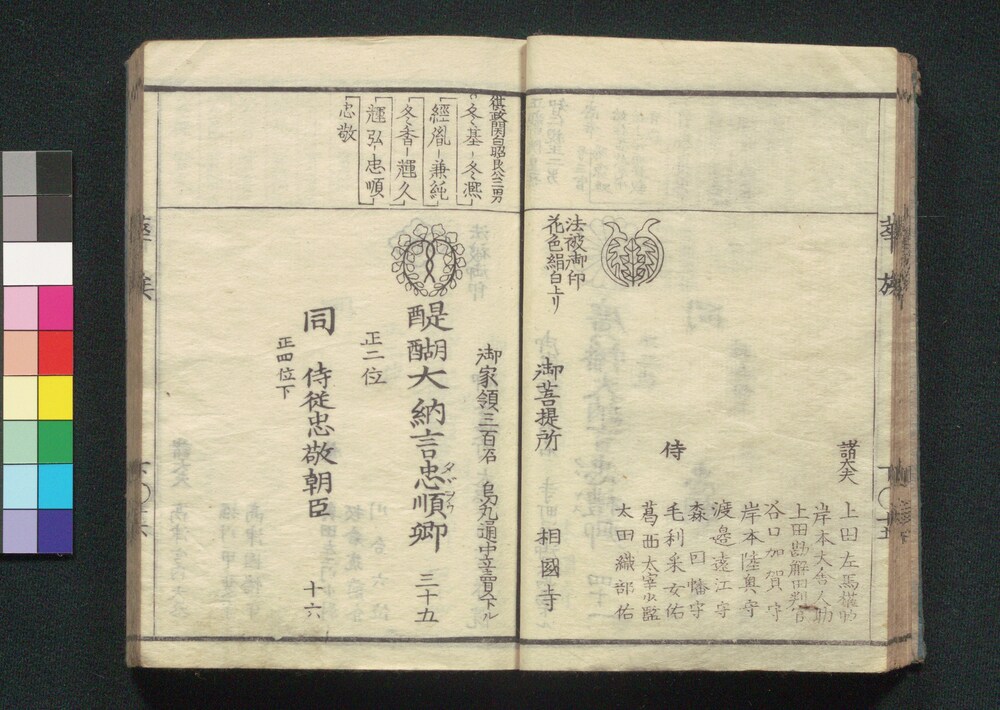 華族
下〇十五
諸大夫
上田左馬權助
岸本大舍人助
上田勘解由判官
谷口加賀守
岸本陸奥守
渡邊遠江守
侍
森因幡守
毛利采女佑
葛西太宰少監
太田織部佑
法被御印
花色絹白上リ
御菩提所
相國寺
摂政関白昭良公三男
冬基-冬凞
經胤-兼純
冬香-輝久
輝弘-忠順
忠敬
御家領三百石 烏丸通中立賣下ル
醍醐大納言忠順卿 三十五
タヾヲサ
正二位
同 侍従忠敬朝臣 十六
正四位下
華族